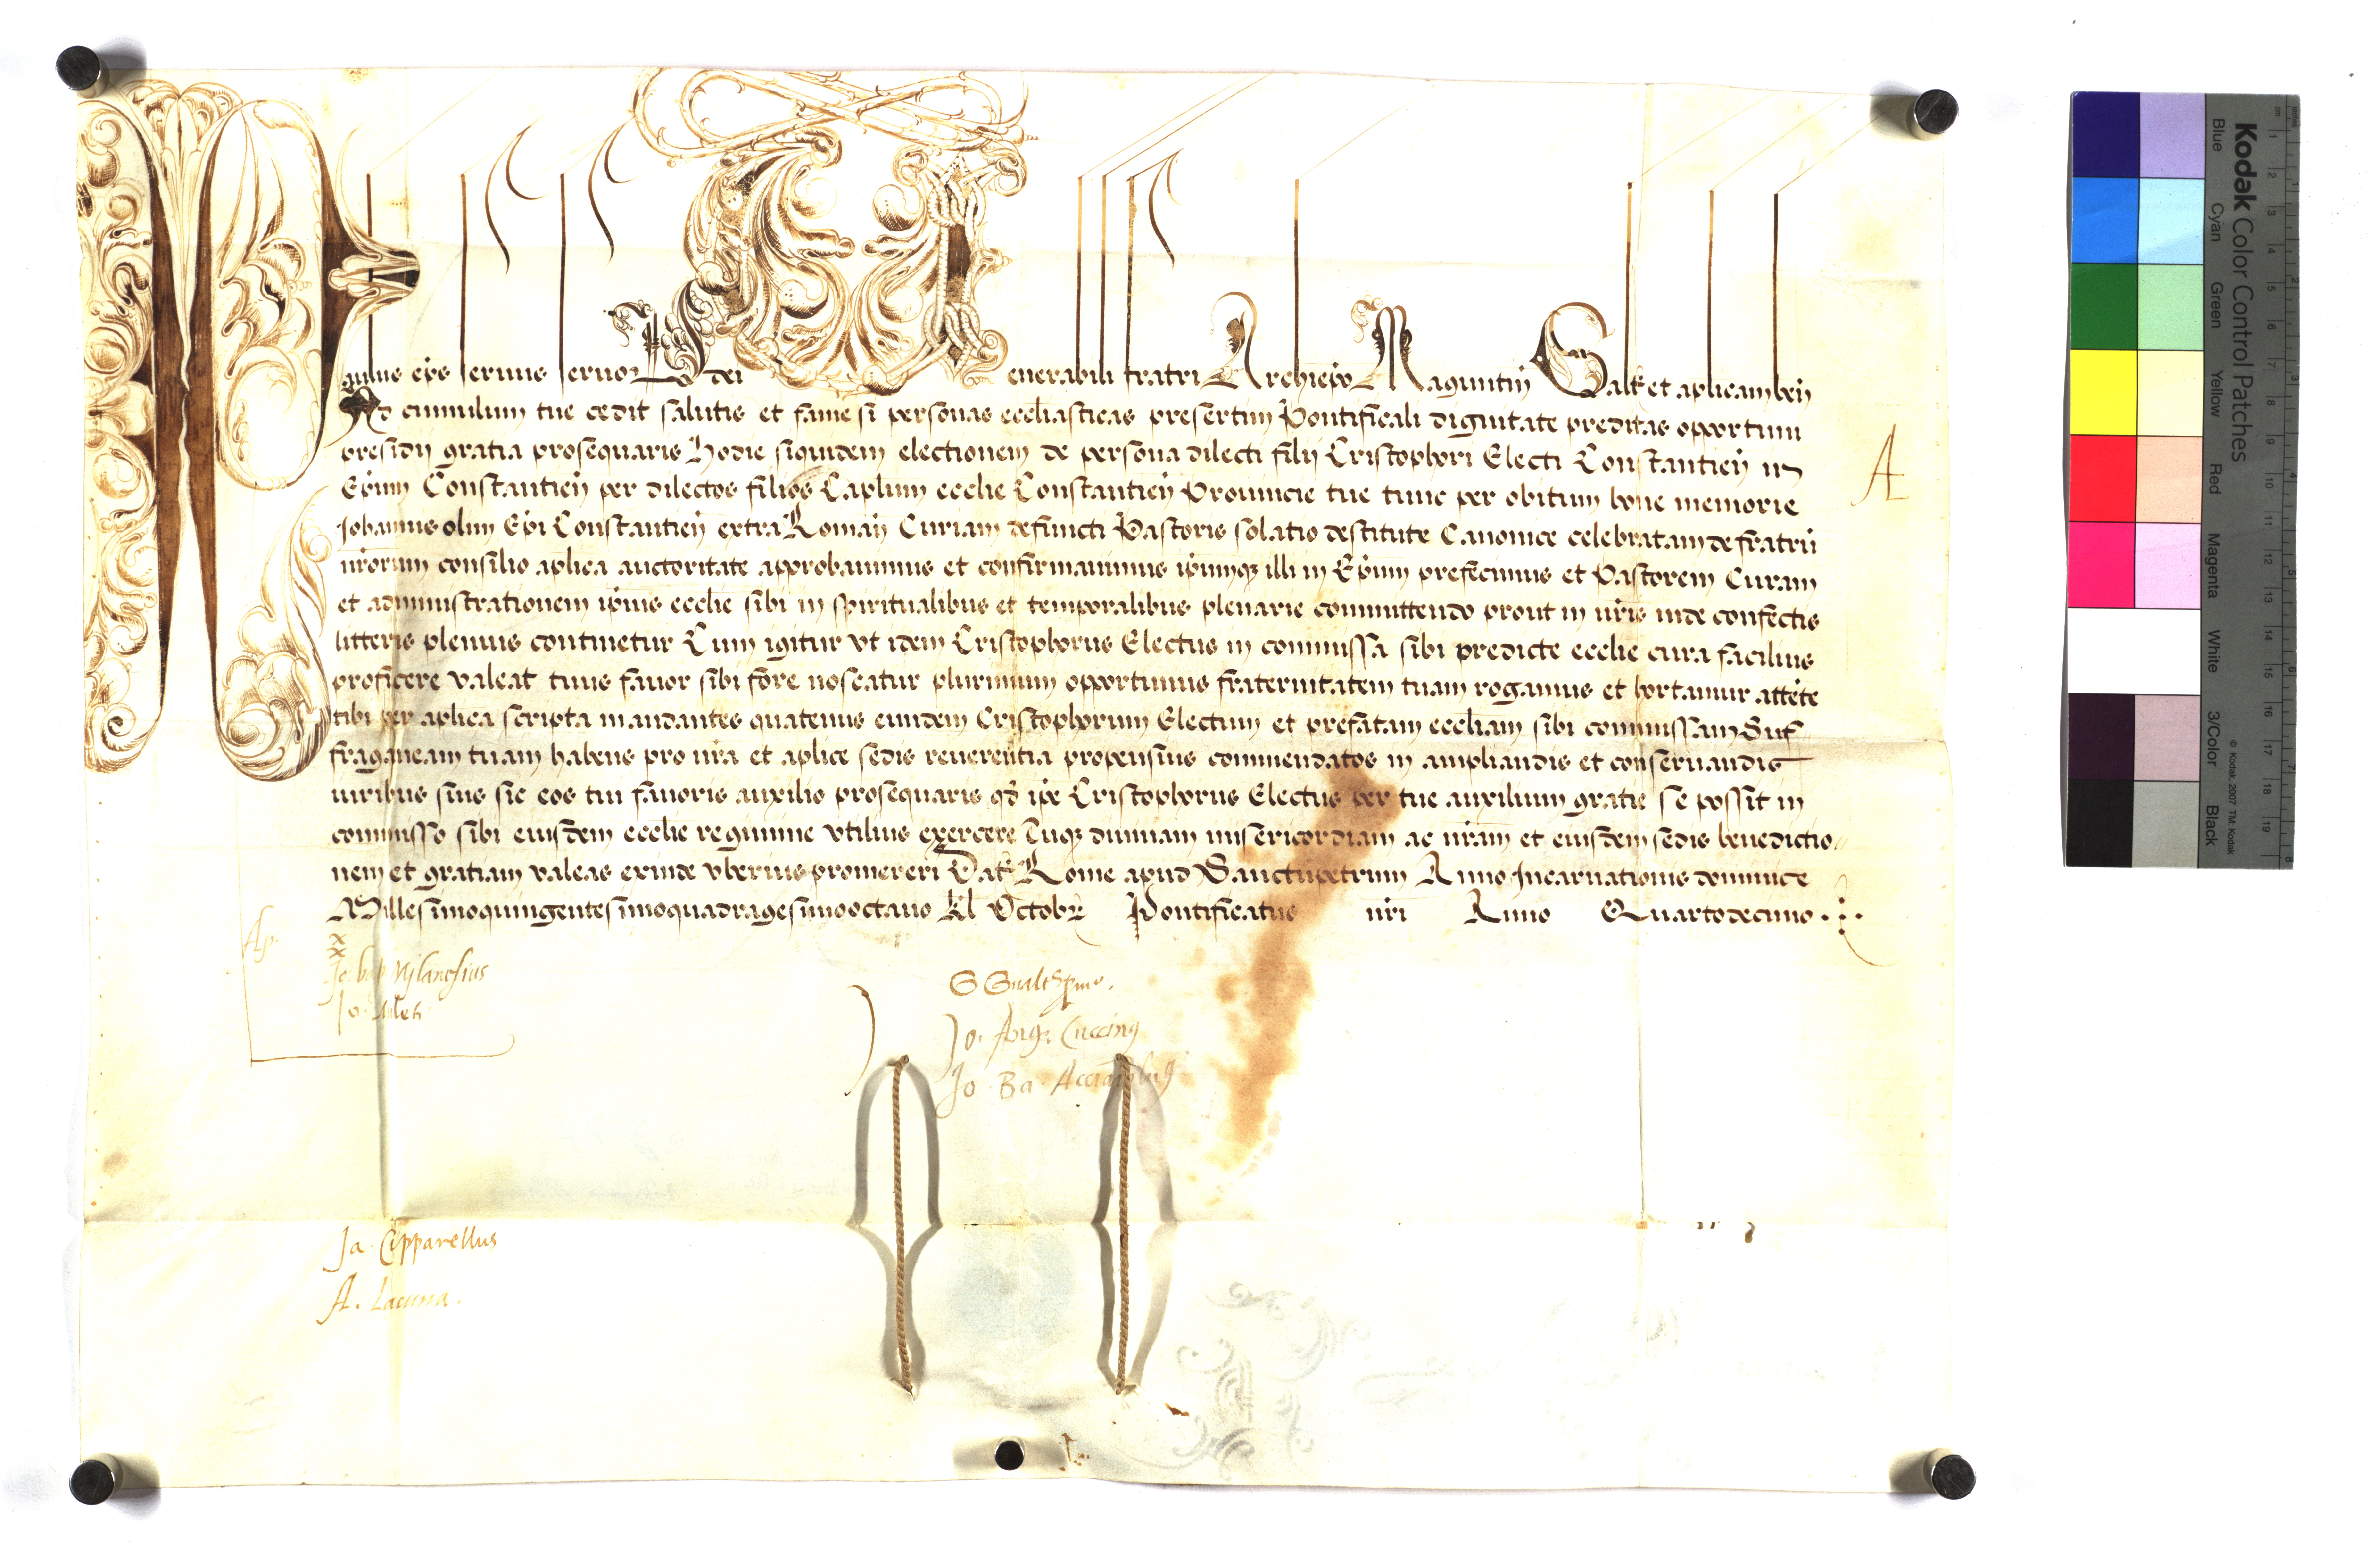 Paulus ep̄s servus servoꝝ dei Venerabili fratri Archiep̄o Maguntiñ Saltḗ et ap̄licam beñ
Ad cumulum tue cedit salutis et fame si personas eccl̄iasticas presertim Pontificali dignitate preditas oportuni
presidii gratia prosequaris Hodie siquidem electionem de persona dilecti filii Cristophori Electi Constantieñ in
Ep̄um Constantieñ per dilectos filios Cap̄lum eccl̄ie Constantieñ Prouincie tue tunc per obitum bone memorie
Johannis olim Ep̄i Constantieñ extra Romañ Curiam defuncti Pastoris solatio destitute Canonice celebratam de fratrū
nr̄orum consilio ap̄lica auctoritate approbauimus et confirmauimus ip̄umqꝫ illi in Ep̄um prefecimus et Pastorem Curam
et administrationem ip̄ius eccl̄ie sibi in spiritualibus et temporalibus plenarie committendo prout in nr̄is inde confectis
litteris plenius continetur Cum igitur vt idem Cristophorus Electus in commissa sibi predicte eccl̄ie cura facilius
proficere valeat tuus fauor sibi fore noscatur plurimum oportunus fraternitatem tuam rogamus et hortamur attēte
tibi per ap̄lica scripta mandantes quatenus eundem Cristophorum Electum et prefatam eccl̄iam sibi commissam Suf
fraganeam tuam habens pro nr̄a et ap̄lice sedis reuerentia propensius commendatos in ampliandis et conseruandis
iuribus suis sic eos tui fauoris auxilio prosequaris qđ ip̄e Cristophorus Electus per tue auxilium gratie se possit in
commisso sibi eiusdem eccl̄ie regimine vtilius exercere Tuqꝫ diuinam misericordiam ac nr̄am et eiusdem sedis benedictio
nem et gratiam valeas exinde vberius promereri Dat̄ Rome apud Sanctūpetrum Anno Incarnationis dominice
Millesimoquingentesimoquadragesimooctauo Kl Octobꝝ Pontificatus nr̄i Anno Quartodecimo
A
x
x
Jo. Ang. Cuccinꝰ
Jo. Ba. Acciaiolus
Ja. Cipparellus
A. Lacuna.
Kodak Color Control Patches
Blue Cyan Green Yellow Red Magenta White 3/Color Black
© Kodak, 2007 TM: Kodak
cm 1 2 3 4 5 6 7 8 9 10 11 12 13 14 15 16 17 18 19
inches 1 2 3 4 5 6 7 8